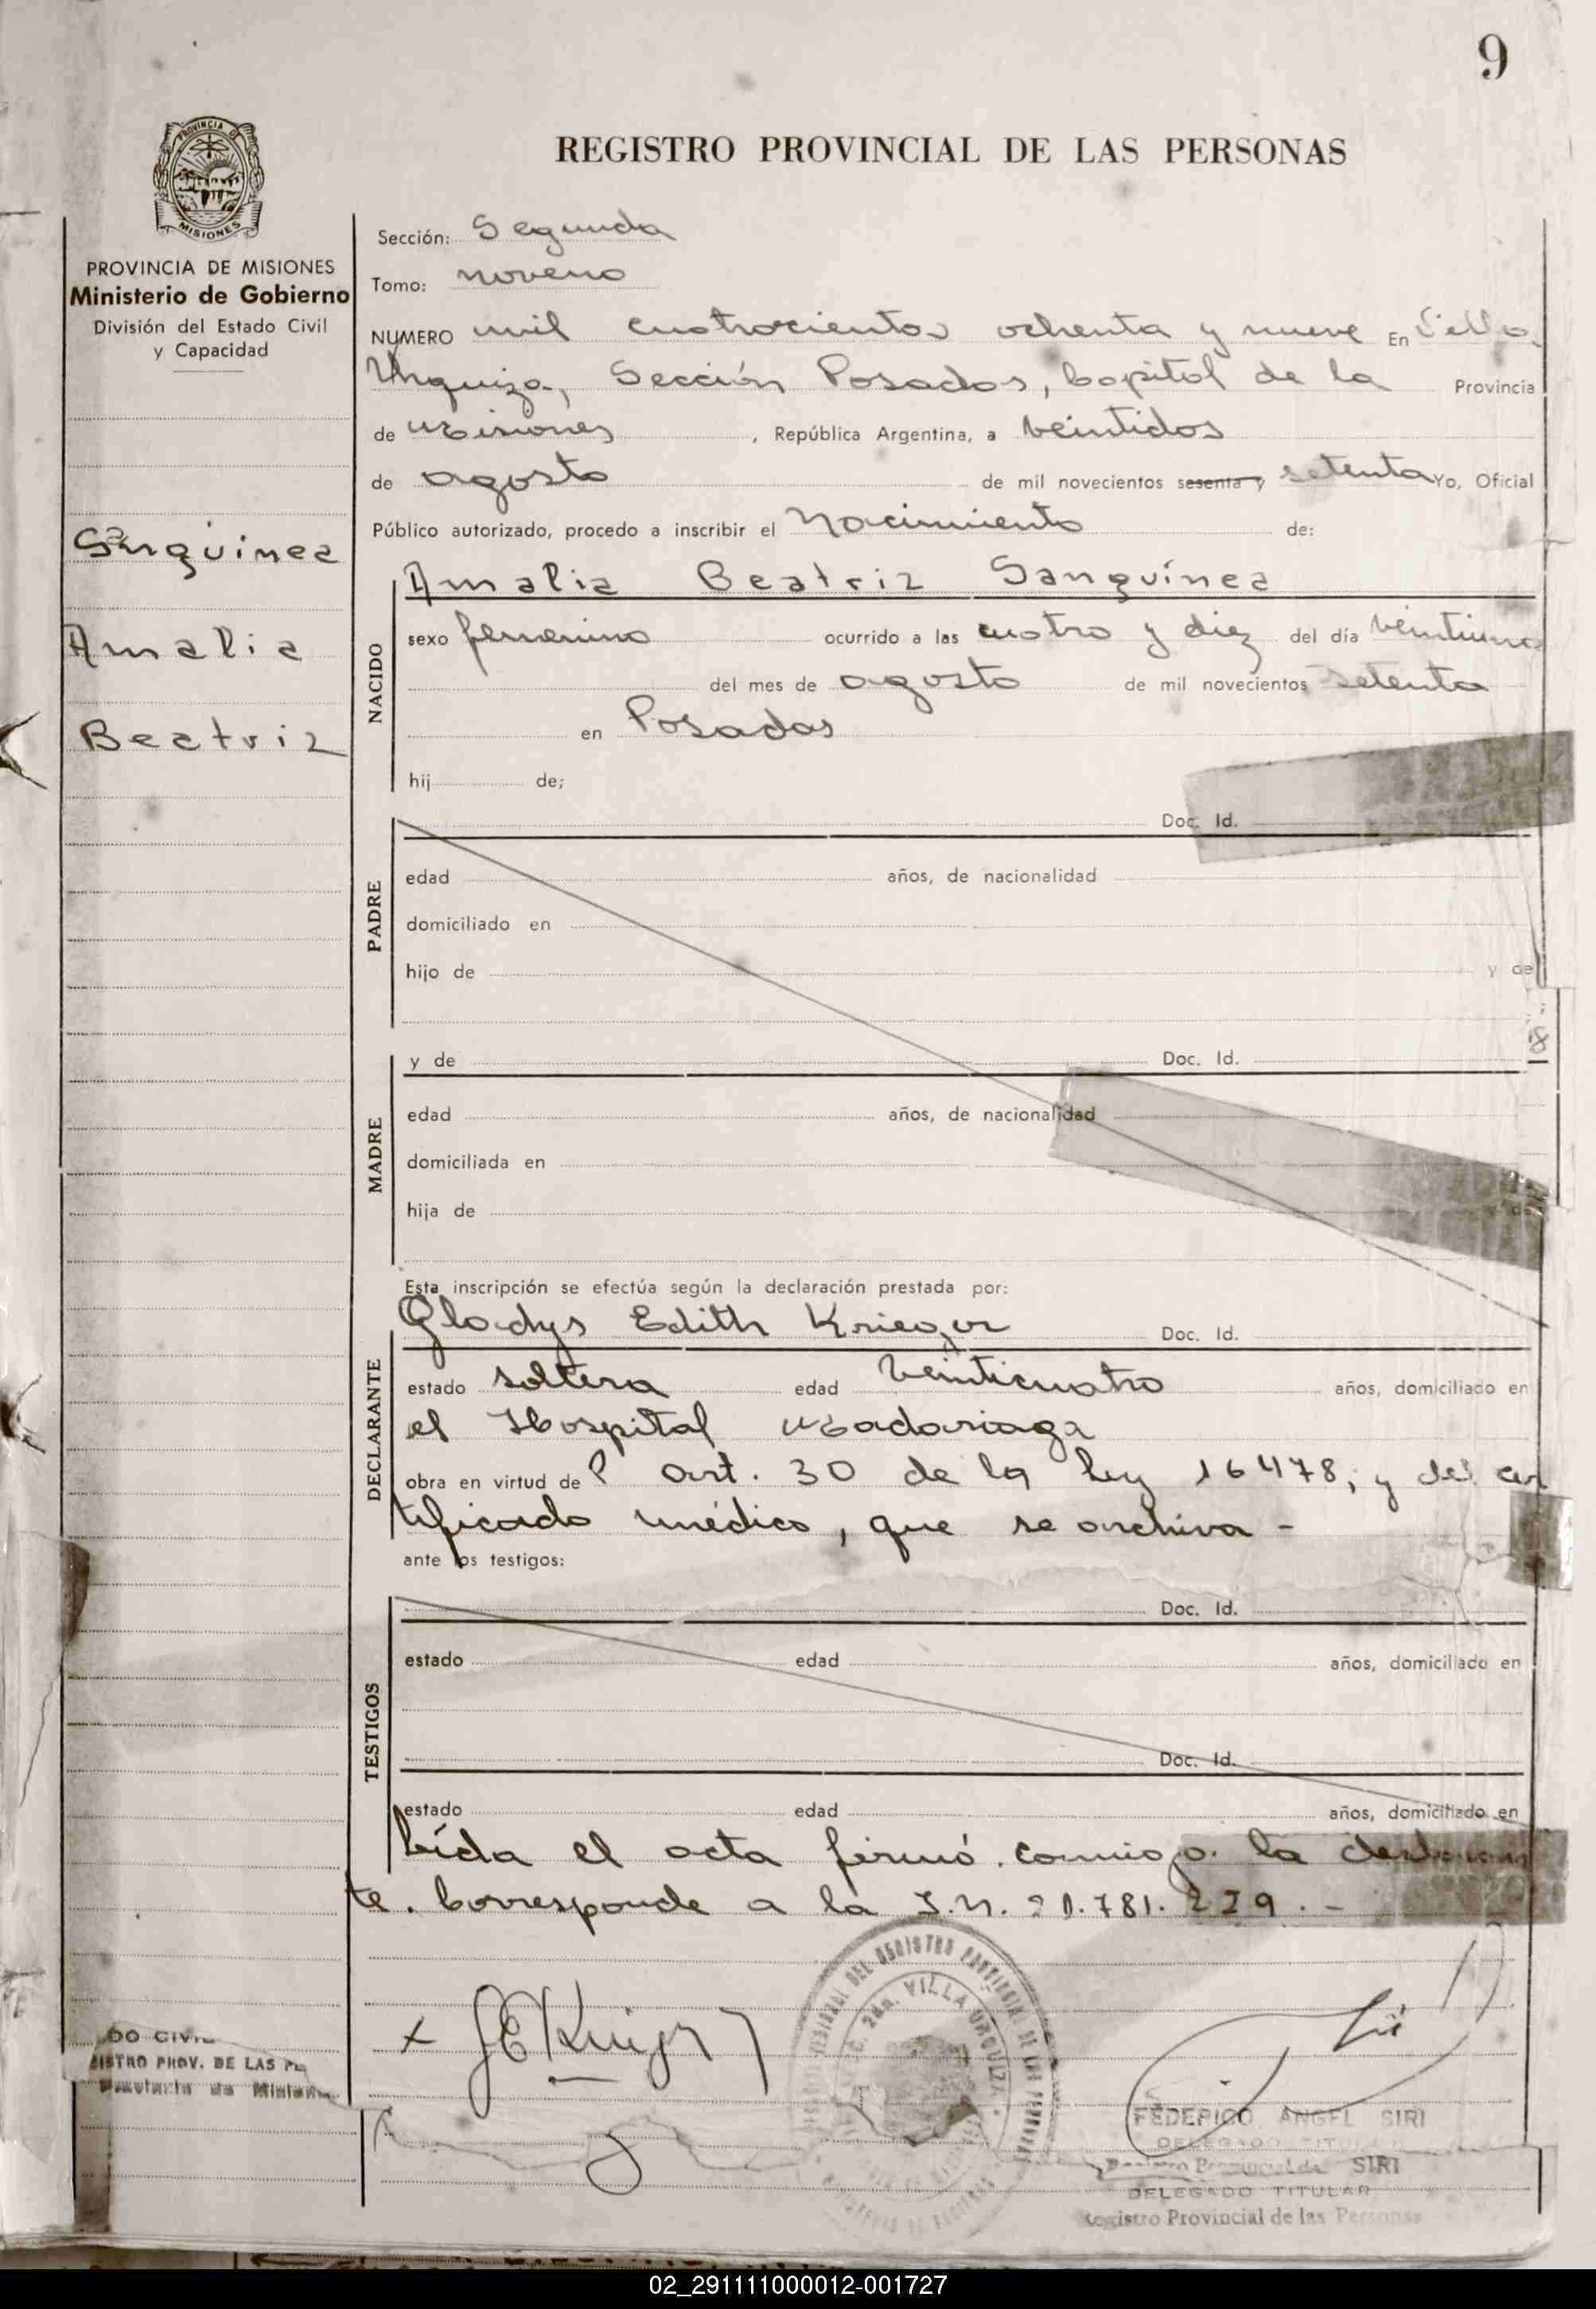 9
PROVINCIA DE
MISIONES
REGISTRO PROVINCIAL DE LAS PERSONAS
PROVINCIA DE MISIONES
Ministerio de Gobierno
División del Estado Civil
y Capacidad
Sanguinea
Amalia
Beatriz
Sección: Segunda
Tomo: noveno
NUMERO mil cuatrocientos ochenta y nueve En Villa
Urquiza, Sección Posadas, Capital de la Provincia
de Misiones, República Argentina, a veintidos
de agosto de mil novecientos sesenta y setenta Yo, Oficial
Público autorizado, procedo a inscribir el Nacimiento de:
NACIDO
Amalia Beatriz Sanguínea
sexo femenino ocurrido a las cuatro y diez del día veintiuno
del mes de agosto de mil novecientos setenta
en Posadas
hij de;
PADRE
Doc. Id.
edad años, de nacionalidad
domiciliado en
hijo de y de
MADRE
y de Doc. Id.
edad años, de nacionalidad
domiciliada en
hija de
Esta inscripción se efectúa según la declaración prestada por:
DECLARANTE
Gladys Edith Krieger Doc. Id.
estado soltera edad veinticuatro años, domiciliado en
el Hospital Madariaga
obra en virtud de l art. 30 de la ley 16478, y del cer
tificado médico, que se archiva -
ante los testigos:
TESTIGOS
Doc. Id.
estado edad años, domiciliado en
Doc. Id.
estado edad años, domiciliado en
Leída el acta firmó conmigo la declaran
te. Corresponde a la I.N. 21.781.229. -
SEC. 2da. VILLA URQUIZA
DO CIVIL
ISTRO PROV. DE LAS PE
FEDERICO ANGEL SIRI
DELEGADO TITULAR
Registro Provincial de SIRI
DELEGADO TITULAR
Registro Provincial de las Personas
02_291111000012-001727